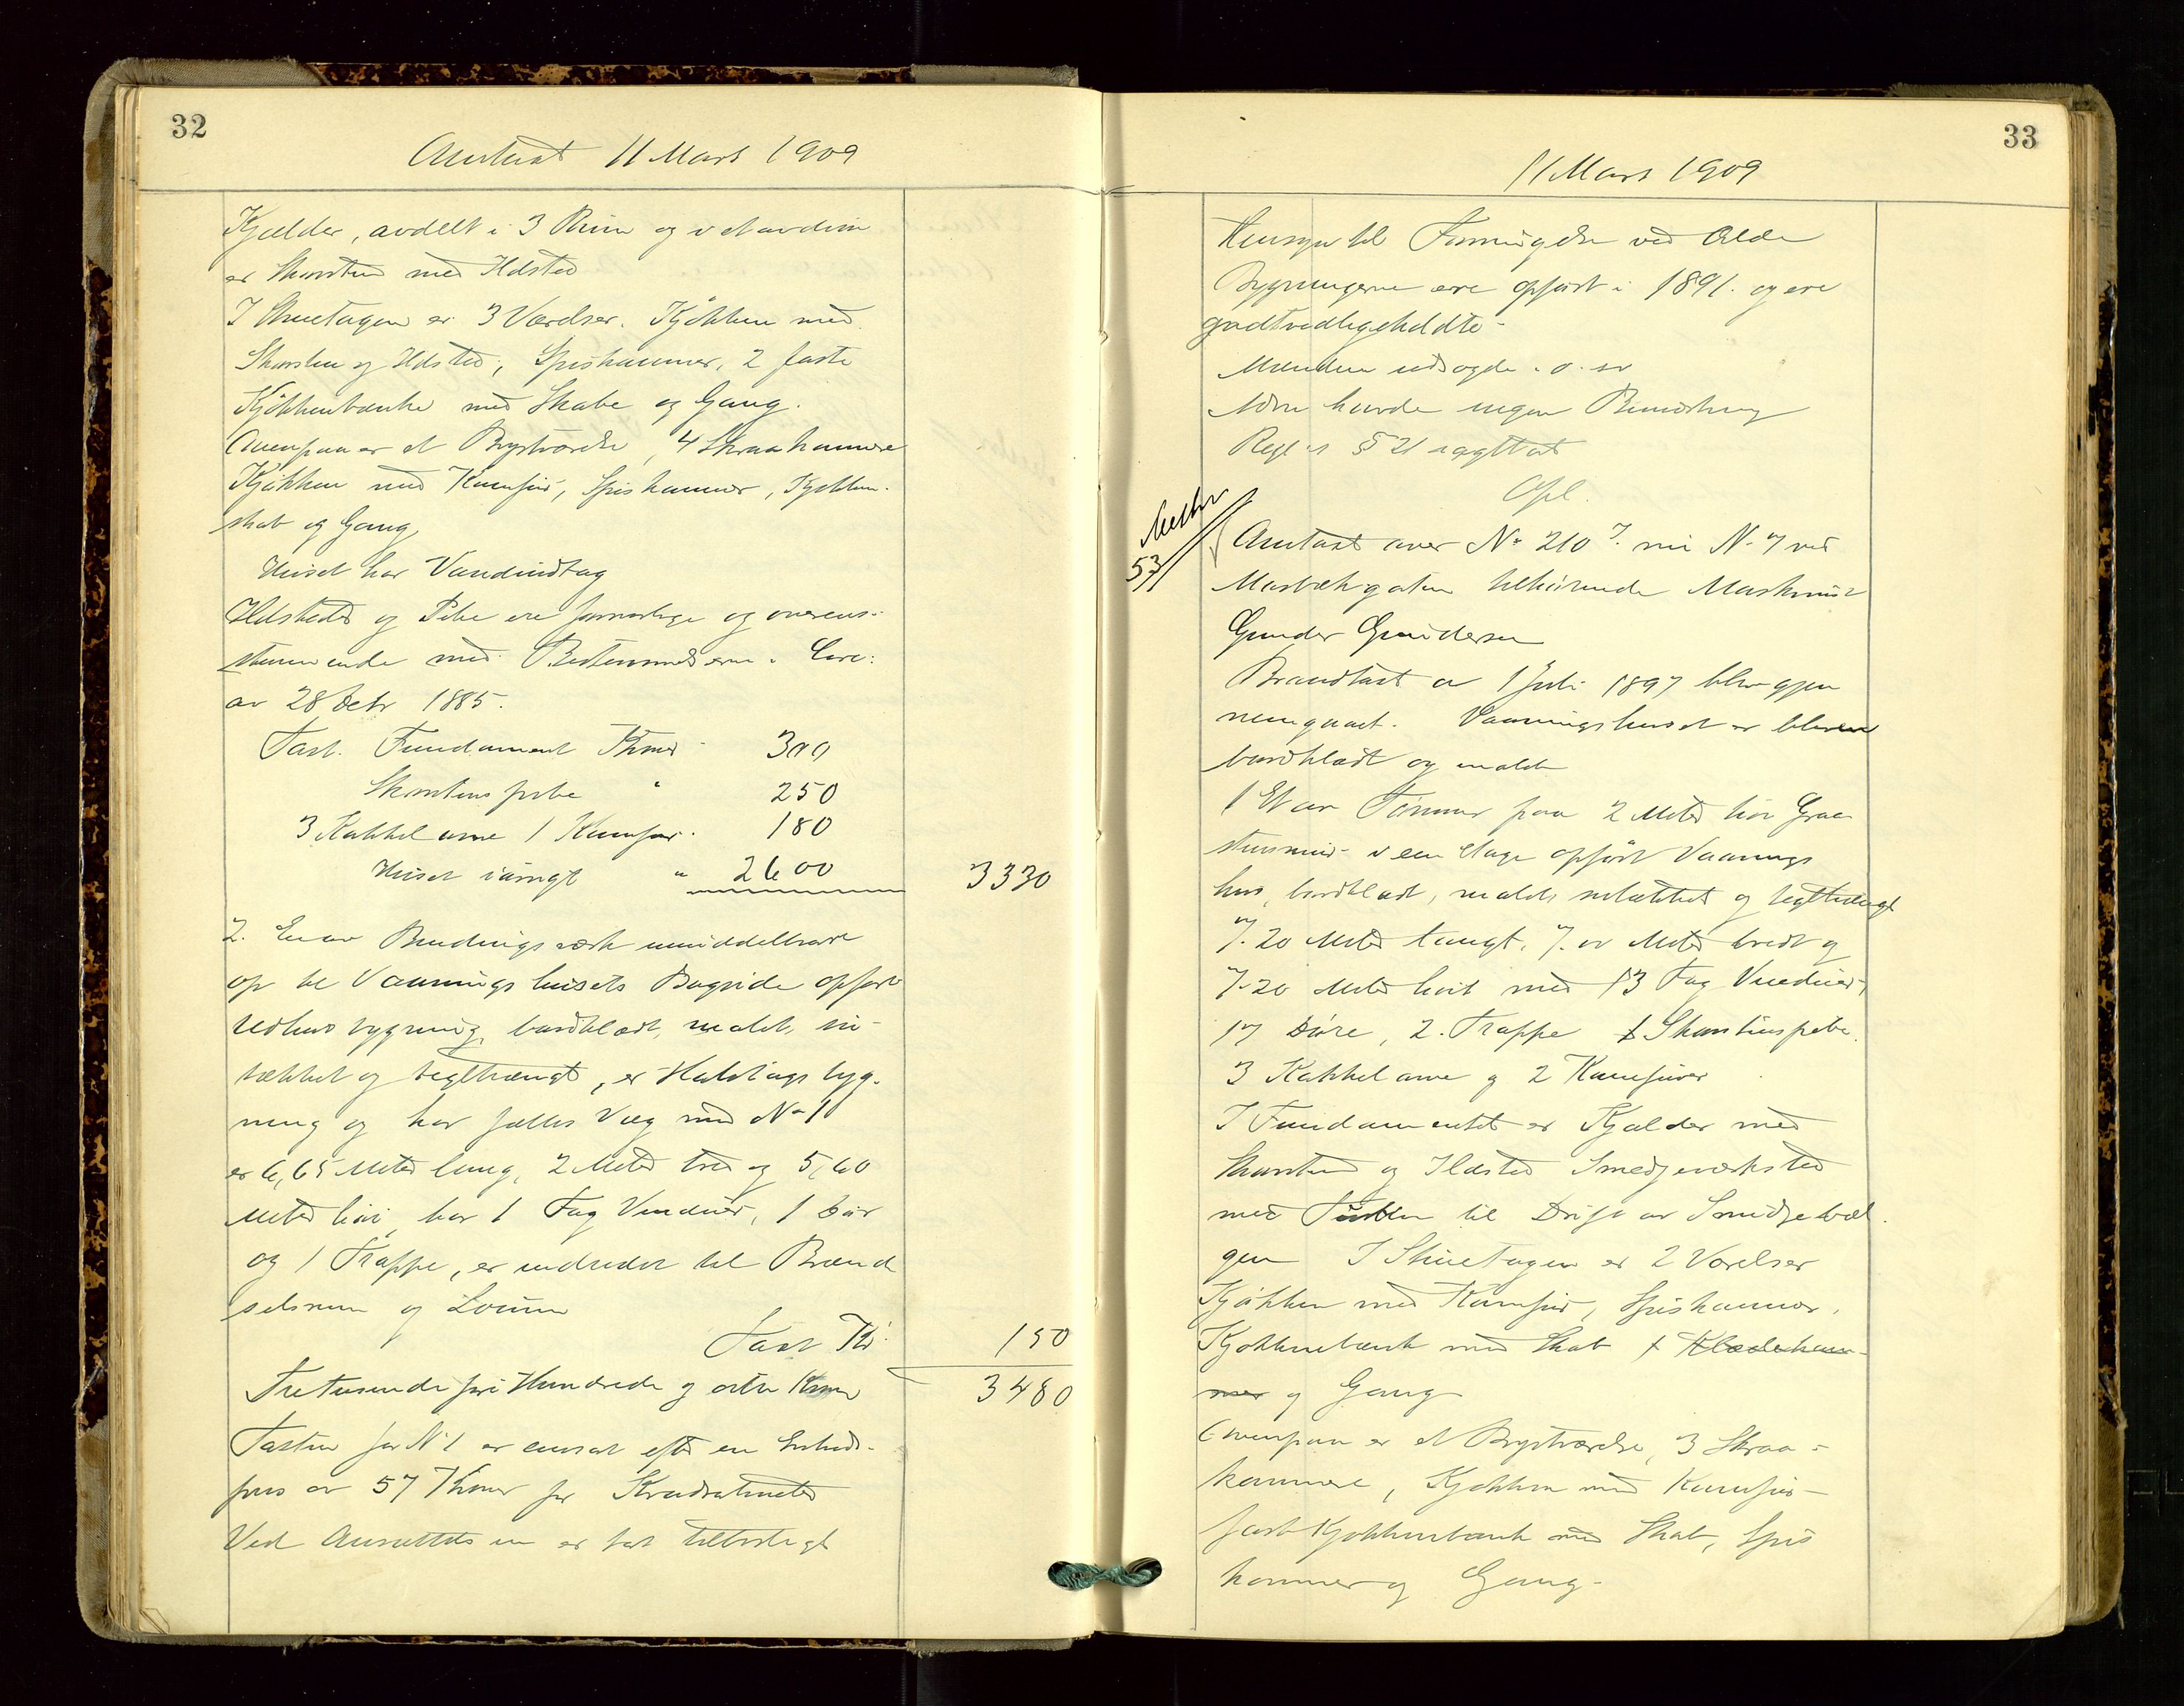 32
Omtaxt 11 Mars 1909
Kjælder, avdelt i 3 Rum og i et av disse
er Skorsten med Ildsted
I Stueetagen er 3 Værelser. Kjøkken med
Skorsten og Ildsted, Spiskammer, 2 faste
Kjøkkenbænke med Skabe og Gang.
Ovenpaa er et Kvistværelse, 4 Skraakammere
Kjøkken med Komfur, Spiskammer, Kjøkken-
skab og Gang
Huset har Vandindtag
Ildsteder og Pibe ere forsvarlige og overens-
stemmende med Bestemmelserne i Circ:
av 28 Octr 1885.
Taxt. Fundament Kroner 300
Skorstenspibe " 250
3 Kakkelovne 1 Komfur. 180
Huset iøvrigt " 2600 3330
2. En av Bindingsværk umiddelbart
op til Vaaningshusets Bagside opført
Udhusbygning, bordklædt, malt, su-
tækket og tegltrængt, er Halvtagsbyg-
ning og har fælles Væg med No 1
er 6,65 Meter lang, 2 Meter bred og 5,60
Meter høi, har 1 Fag Vinduer, 1 Dør
og 1 Trappe, er indredet til Brænd
selsrum og Locum
Taxt Kr. 150
Tretusende fire Hundrede og otti Kroner 3480
Taxten for No 1 er ansat efter en Enheds-
pris av 57 Kroner pr Kvadratmeter
Ved Ansættelsen er tat tilbørligt
33
11 Mars 1909
Hensyn til Forringelse ved Ælde
Bygningerne ere opført i 1891. og ere
godt vedligeholdte-
Mændene udsagde o. sv
Adm havde ingen Bemærkning
Regl. §21 iagttat
Opl.
53
Omtaxt over No 210 7. nu No 7 ved
gaten tilhørende Maskinist
Gunder Gundersen
Brandtaxt av 1 Juli 1897 blev gjen
nemgaaet. Vaaningshuset er bleven
bordklædt og malt
1 Et av Tømmer paa 2 Meter høi Graa
stensmur i een Etage opført Vaanings
hus, bordklædt, malt, sutækket og tegltrængt
7.20 Meter langt, 7. Meter bredt og
7.20 Meter høit med 13 Fag Vinduer,
17 Døre, 2. Trappe 1 Skorstenspibe.
3 Kakkelovne og 2 Komfurer
I Fundamentet er Kjælder med
Skorsten og Ildsted Smedjeværksted
med til Drift av Smidjebæl-
gen I Stueetagen er 2 Værelser
Kjøkken med Komfur, Spiskammer,
Kjøkkenbænk med Skab Klædekam-
mer og Gang
Ovenpaa er et Kvistværelse, 3 Skraa-
kammere, Kjøkken med Komfur
fast Kjøkkenbænk med Skab, Spis
kammer og Gang-